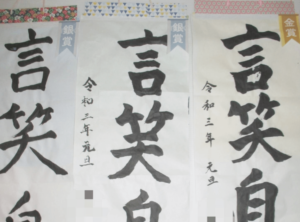 金賞
言笑自
令和三年 元旦
銀賞
言笑自
令和三年 元旦
銀賞
言笑自